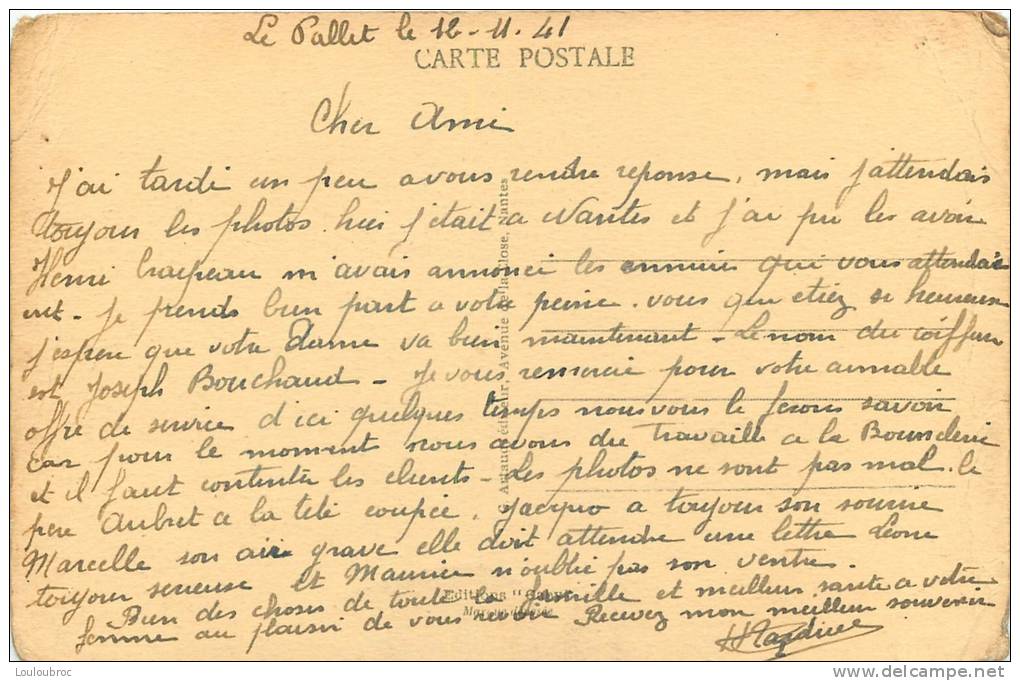 Le Pallet le 12-11.41
CARTE POSTALE
Cher Ami
J'ai tardé un peu a vous rendre reponse, mais j'attendais
toujour les photos. hier j'était a Nantes et j'ai pu les avoir
Henri m'avais annoncé les ennuies qui vous attendai
ent. Je prends bien part a votre peine. vous qui etiez si heureuse
j'espere que votre Dame va bien maintenant - Le nom du coiffeur
est Joseph Bouchaud - Je vous remercie pour votre aimable
offre de service d'ici quelques temps nous vous le ferons savoir
car pour le moment nous avons du Travaille a la
et il faut contenté les clients - Les photos ne sont pas mal. le
pere Aubret a la tété coupée, a toujour son sourire
Marcelle son air grave elle doit attendre une lettre Leone
toujour serieuse et Maurice n'oublie pas son ventre.
Bien des choses de toute la famille et meilleur santé a votre
femme au plaisir de vous revoir Recevez mon meilleur souvenir
Artaud éditeur, Avenue de la Close, Nantes
Editions "Gaby"
Louloubroc
delcampe.net